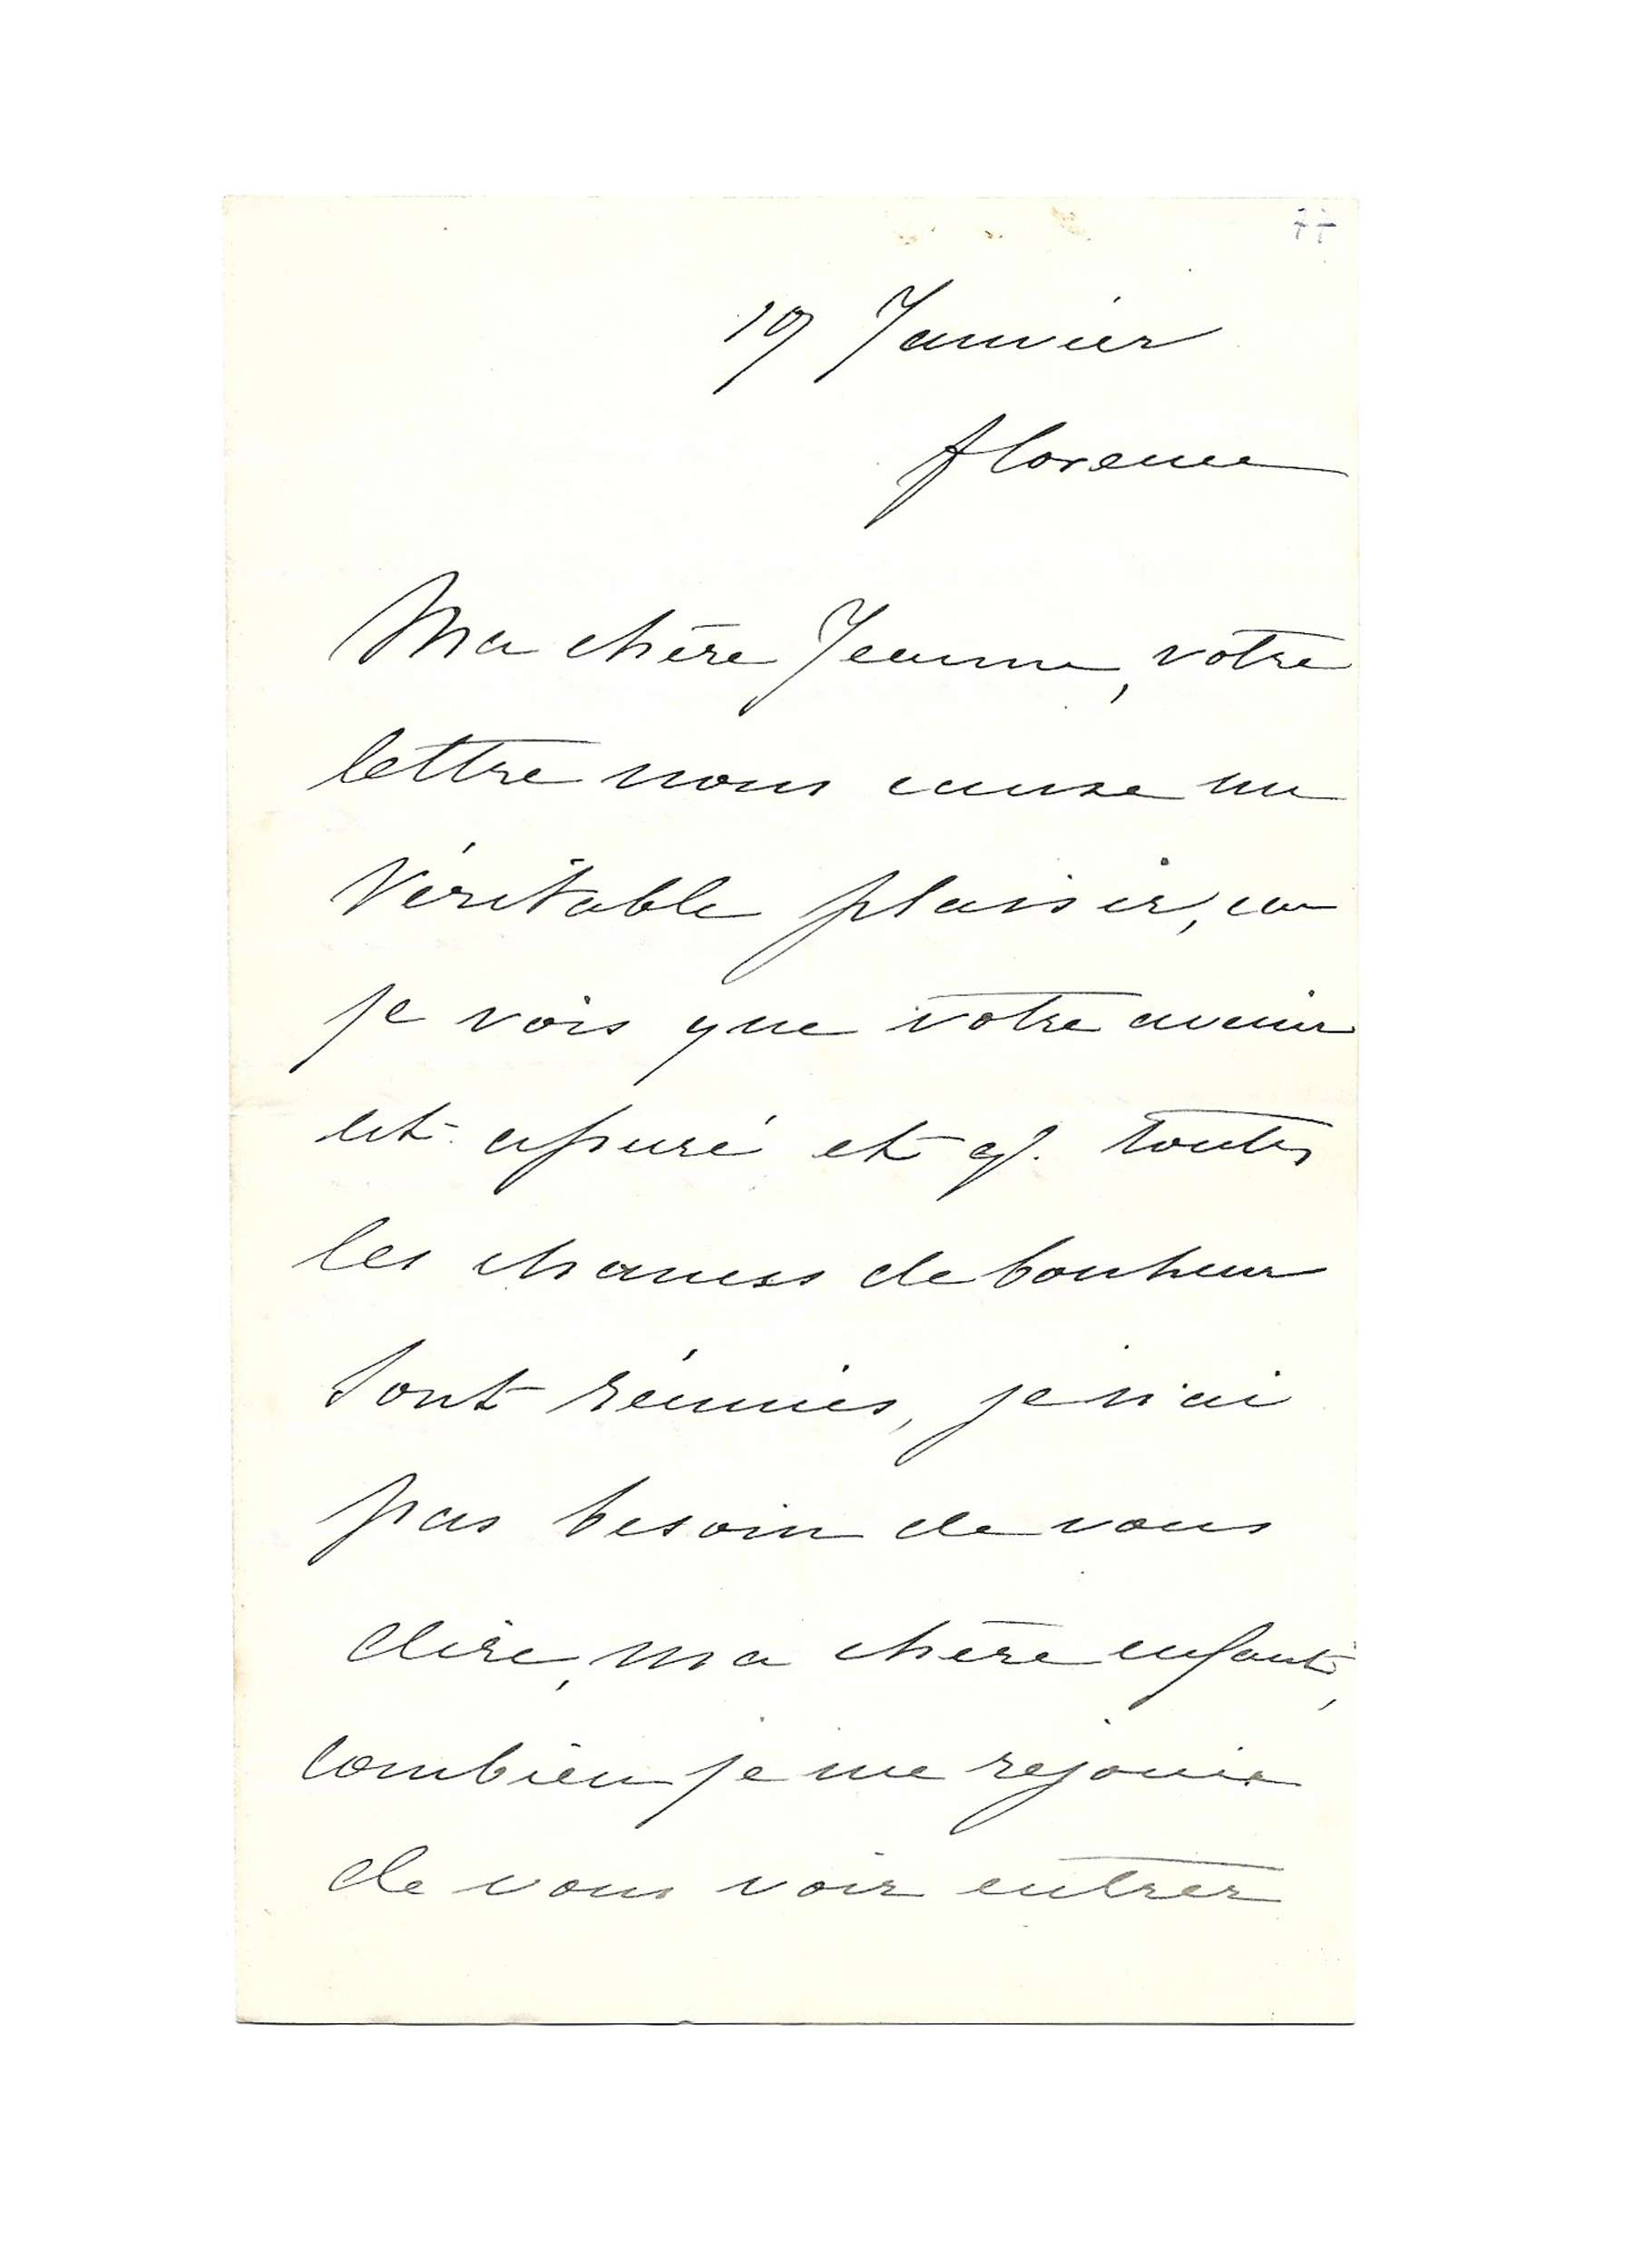 77
19 Janvier
Florence
Ma chère Jeanne, votre
lettre nous cause un
véritable plaisir, car
je vois que votre avenir
est assuré et q. toutes
les chances de bonheur
sont réunies, je n'ai
pas besoin de vous
dire, ma chère enfant,
combien je me rejouis
de vous voir entrer